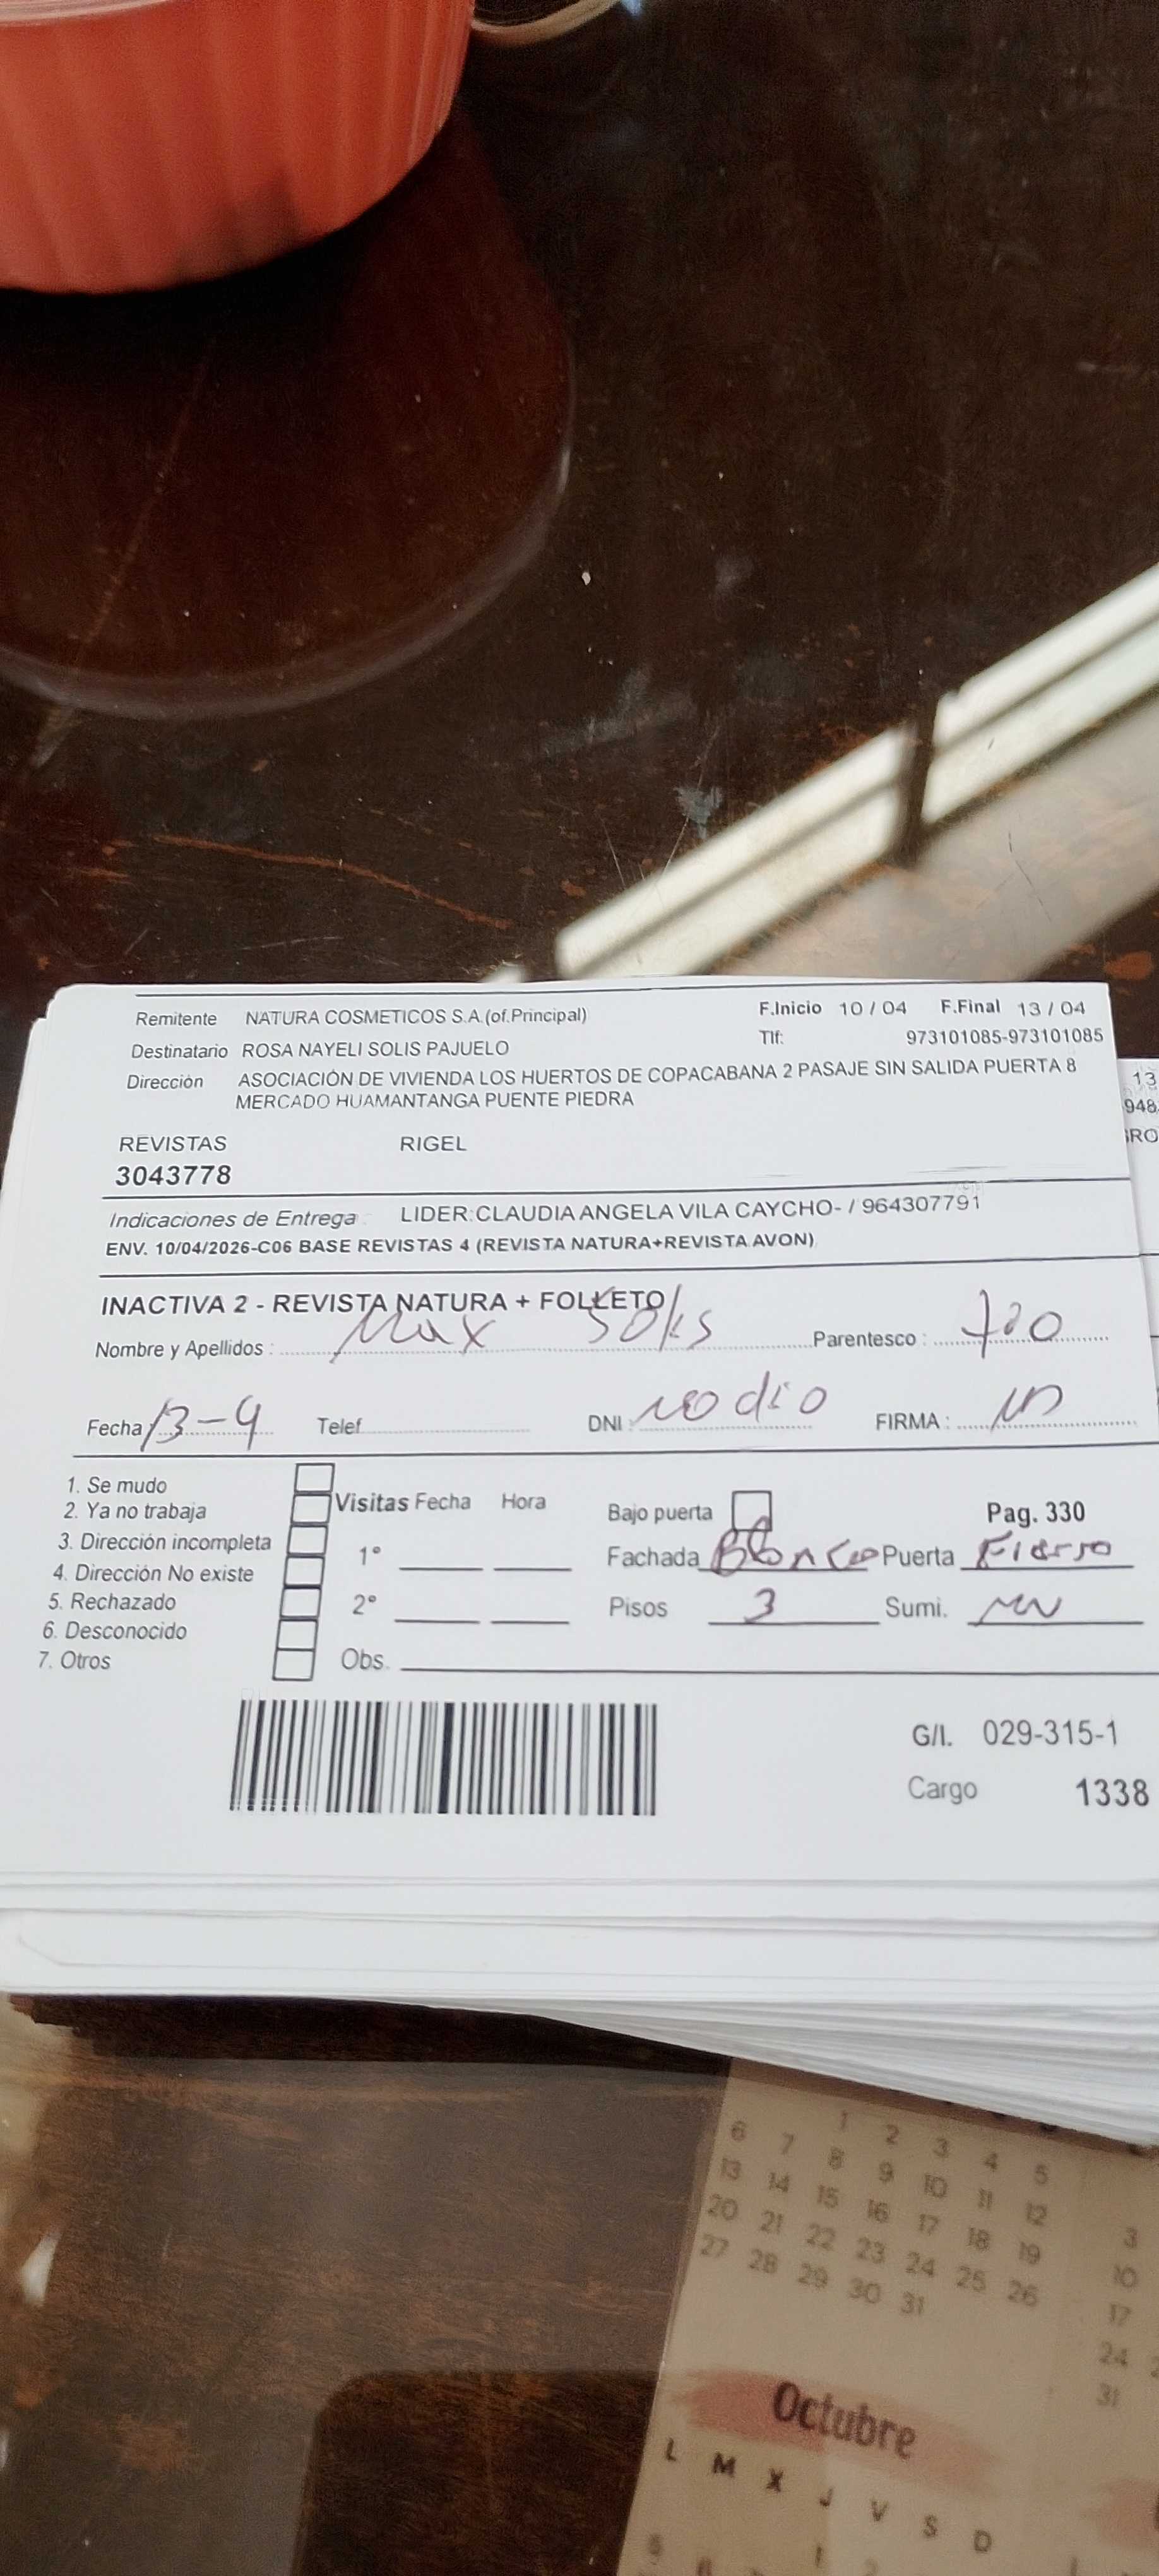 Remitente NATURA COSMETICOS S.A.(of.Principal) F.Inicio 10 / 04 F.Final 13 / 04
Destinatario ROSA NAYELI SOLIS PAJUELO Tlf: 973101085-973101085
Dirección ASOCIACIÓN DE VIVIENDA LOS HUERTOS DE COPACABANA 2 PASAJE SIN SALIDA PUERTA 8
MERCADO HUAMANTANGA PUENTE PIEDRA
REVISTAS RIGEL
3043778
Indicaciones de Entrega : LIDER:CLAUDIA ANGELA VILA CAYCHO- / 964307791
ENV. 10/04/2026-C06 BASE REVISTAS 4 (REVISTA NATURA+REVISTA AVON)
INACTIVA 2 - REVISTA NATURA + FOLLETO
Nombre y Apellidos : Max Solis Parentesco :
Fecha : 13-4 Telef. DNI : no dio FIRMA :
1. Se mudo
2. Ya no trabaja
3. Dirección incompleta
4. Dirección No existe
5. Rechazado
6. Desconocido
7. Otros
Visitas Fecha Hora
1°
2°
Obs.
Bajo puerta Pag. 330
Fachada Blanco Puerta Fierro
Pisos 3 Sumi.
G/I. 029-315-1
Cargo 1338
13
948
RO
1 2 3 4 5
6 7 8 9 10 11 12
13 14 15 16 17 18 19
20 21 22 23 24 25 26
27 28 29 30 31
3
10
17
24
31
Octubre
L M X J V S D